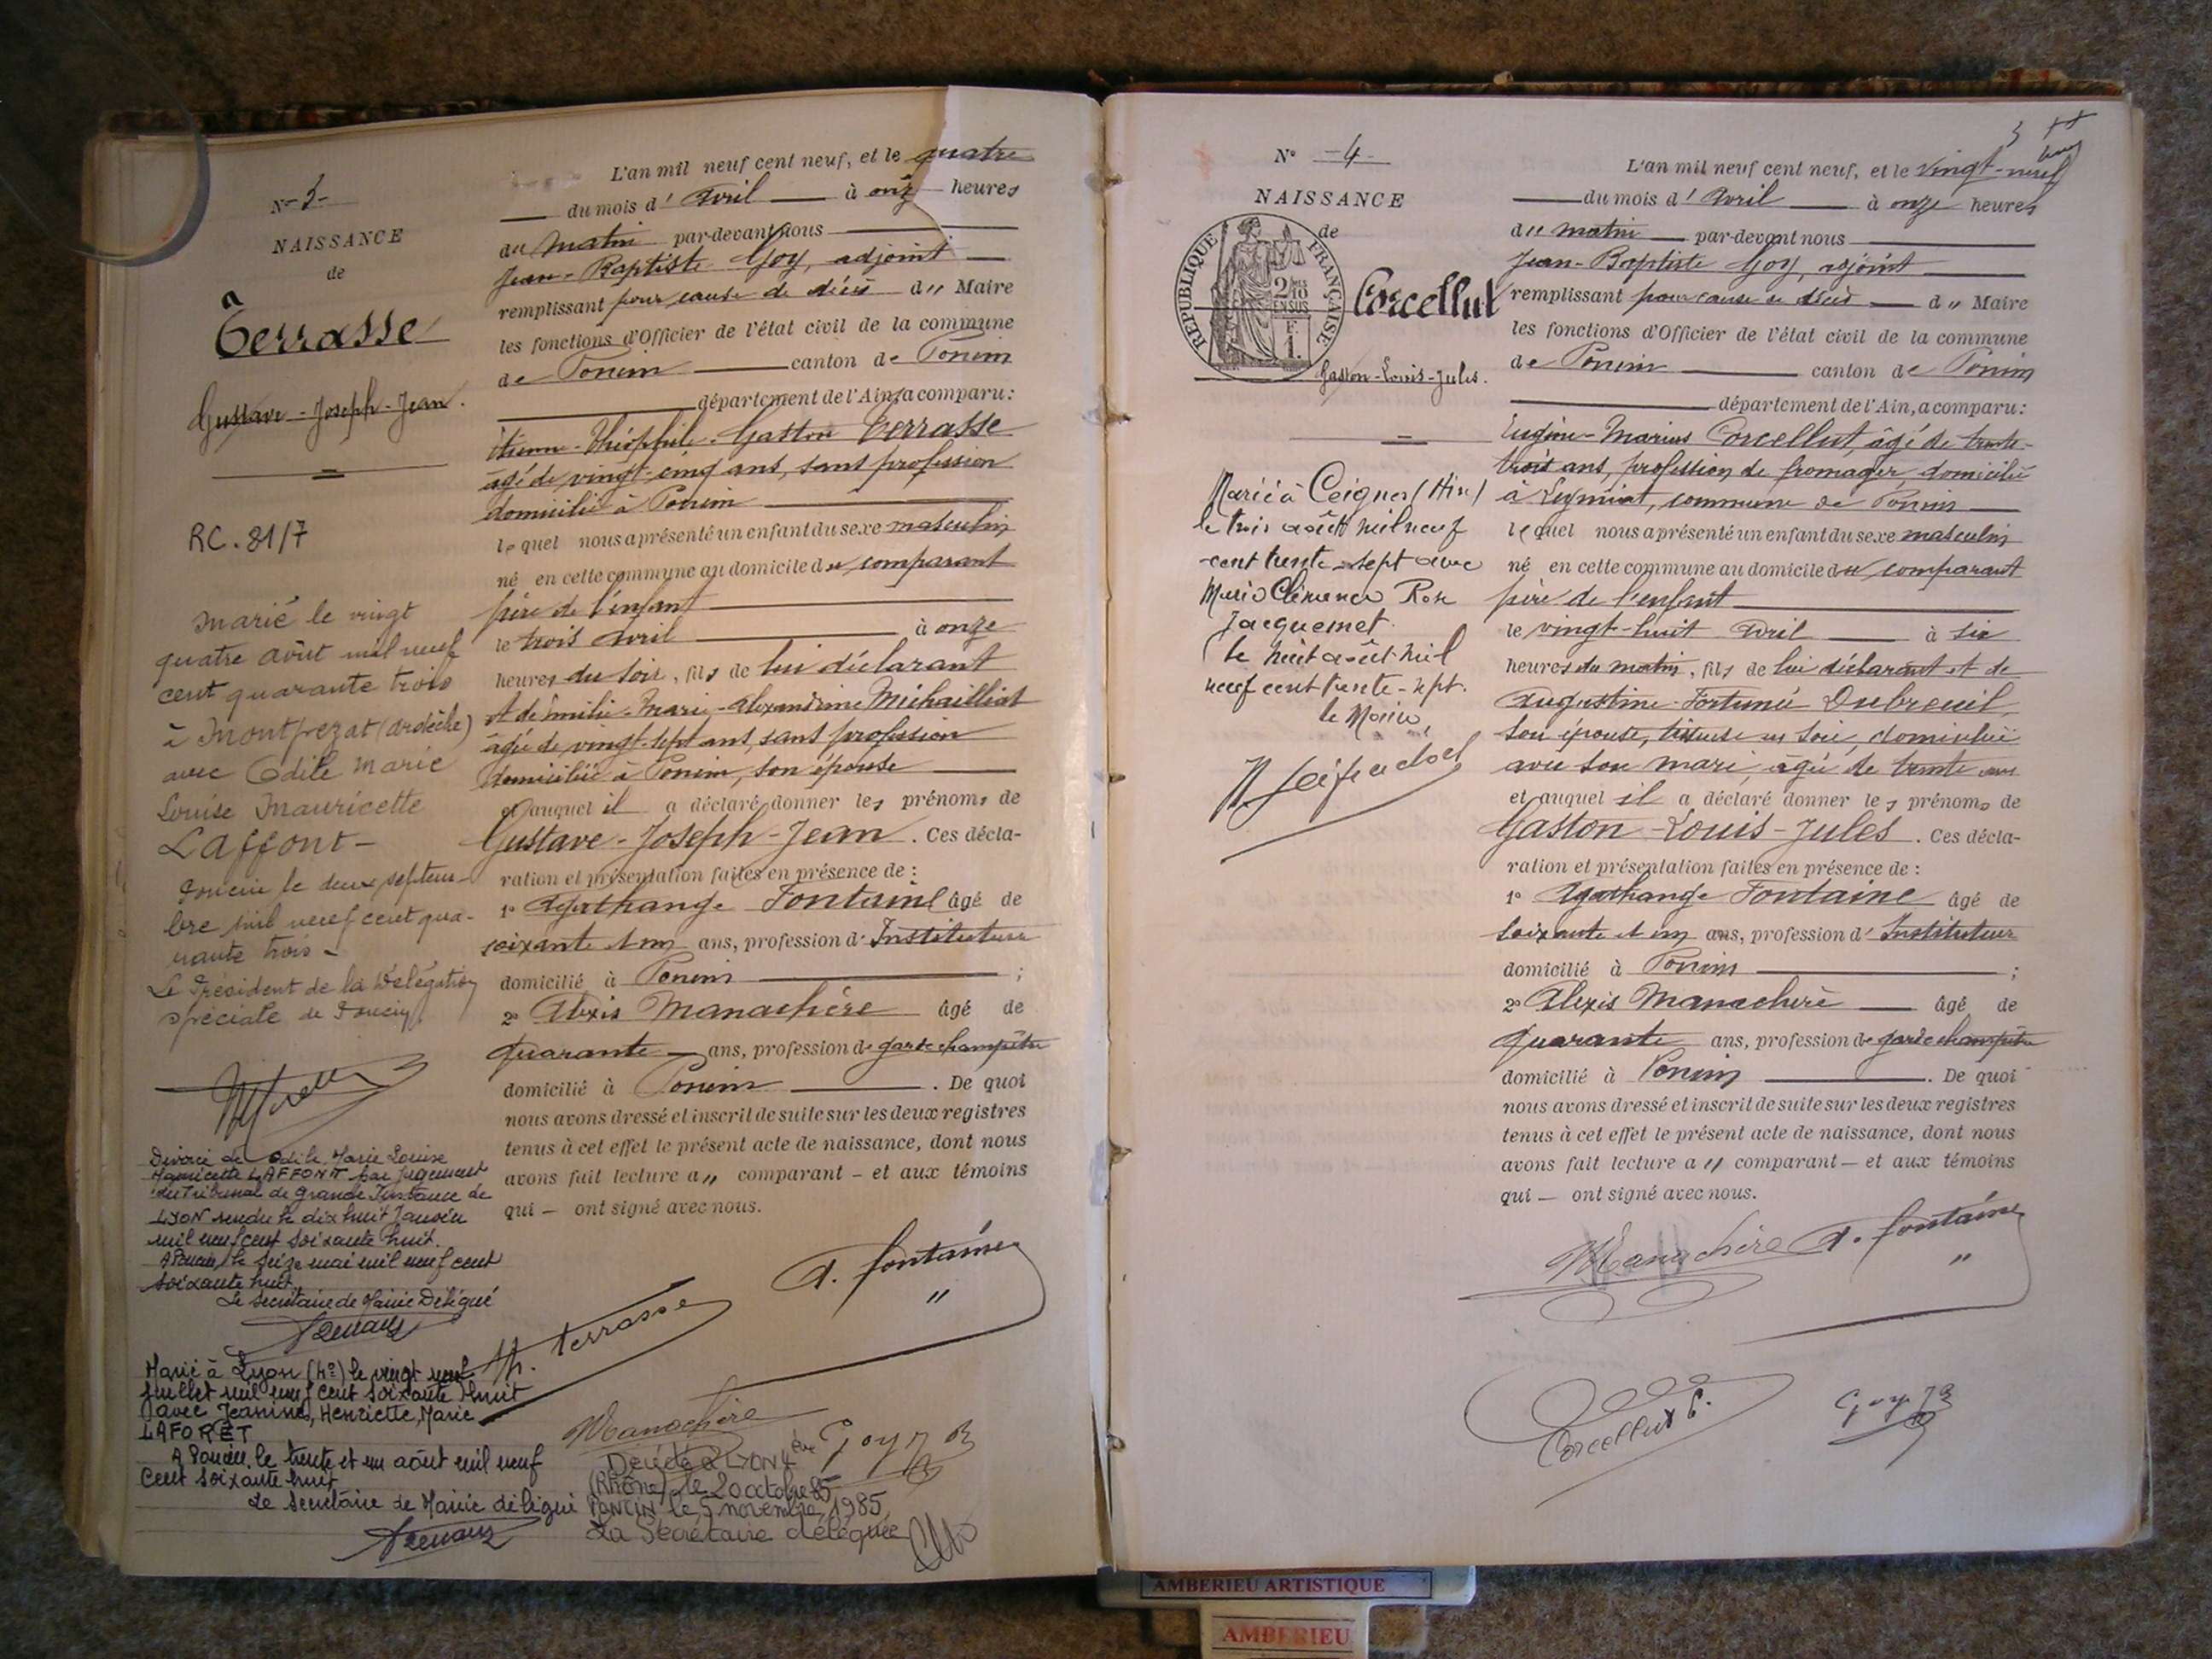 N° 3
NAISSANCE
de
Terrasse
Gustave-Joseph-Jean.
RC. 81/7
Marié le vingt
quatre août mil neuf
cent quarante trois
à Montpezat (Ardèche)
avec Odile Marie
Louise Mauricette
Laffont-
Poncin le deux septem-
bre mil neuf cent qua-
rante trois-
Le Président de la Délégation
spéciale de Poncin,
Divorcé de Odile, Marie Louise
Mauricette LAFFONT par jugement
du Tribunal de Grande Instance de
LYON rendu le dix huit Janvier
mil neuf cent soixante huit.
A Poncin, le seize mai mil neuf cent
soixante huit.
Le secrétaire de Mairie Délégué
Marié à Lyon (4e) le vingt neuf
Juillet mil neuf cent soixante huit
avec Jeanine, Henriette, Marie
LAFORÊT
A Poncin, le trente et un août mil neuf
cent soixante huit
Le secrétaire de Mairie délégué
L'an mil neuf cent neuf, et le quatre
du mois d'Avril à onz heures
du matin par-devant nous
Jean-Baptiste Goy, adjoint
remplissant pour cause de décès du Maire
les fonctions d'Officier de l'état civil de la commune
de Poncin canton de Poncin
département de l'Ain, a comparu:
Etienne-Théophile-Gaston Terrasse
âgé de vingt-cinq ans, sans profession
domicilié à Poncin
lequel nous a présenté un enfant du sexe masculin
né en cette commune au domicile du comparant
père de l'enfant
le trois avril à onze
heures du soir, fils de lui déclarant
et de Emilie-Marie-Alexandrine Michailliat
âgée de vingt-sept ans, sans profession
domiciliée à Poncin, son épouse
et auquel il a déclaré donner les prénoms de
Gustave-Joseph-Jean. Ces décla-
ration et présentation faites en présence de:
1° Agathange Fontaine âgé de
soixante et un ans, profession d'Instituteur
domicilié à Poncin ;
2° Alexis Manachère âgé de
quarante ans, profession de garde champêtre
domicilié à Poncin. De quoi
nous avons dressé et inscrit de suite sur les deux registres
tenus à cet effet le présent acte de naissance, dont nous
avons fait lecture au comparant - et aux témoins
qui - ont signé avec nous.
A. fontaine
Th. terrasse
Manachère
Goy JB
Décédé à LYON 4ème
(Rhône) le 20 octobre 85
PONCIN le 5 novembre 1985
La Secrétaire déléguée
N° -4-
NAISSANCE
de
REPUBLIQUE FRANÇAISE
2/10
EN SUS
F.
1.
Corcellut
Gaston-Louis-Jules.
Marié à Ceignes (Ain)
le trois août mil neuf
cent trente-sept avec
Marie Clémence Rose
Jacquemet.
le huit août mil
neuf cent trente-sept.
le Maire,
L'an mil neuf cent neuf, et le vingt-neuf
du mois d'Avril à onze heures
du matin par-devant nous
Jean-Baptiste Goy, adjoint
remplissant pour cause de décès du Maire
les fonctions d'Officier de l'état civil de la commune
de Poncin canton de Poncin
département de l'Ain, a comparu:
Eugène-Marius Corcellut, âgé de trente-
trois ans, profession de fromager, domicilié
à Leymiat, commune de Poncin
lequel nous a présenté un enfant du sexe masculin
né en cette commune au domicile du comparant
père de l'enfant
le vingt-huit Avril à six
heures du matin, fils de lui déclarant et de
Augustine-Fortunée Dubreuil,
son épouse, tisseuse en soie, domiciliée
avec son mari, agée de trente ans
et auquel il a déclaré donner les prénoms de
Gaston-Louis-Jules. Ces décla-
ration et présentation faites en présence de:
1° Agathange Fontaine âgé de
soixante et un ans, profession d'Instituteur
domicilié à Poncin ;
2° Alexis Manachère âgé de
quarante ans, profession de garde champêtre
domicilié à Poncin. De quoi
nous avons dressé et inscrit de suite sur les deux registres
tenus à cet effet le présent acte de naissance, dont nous
avons fait lecture au comparant - et aux témoins
qui - ont signé avec nous.
Manachère A. fontaine
Corcellut E.
Goy JB
AMBERIEU ARTISTIQUE
AMBERIEU